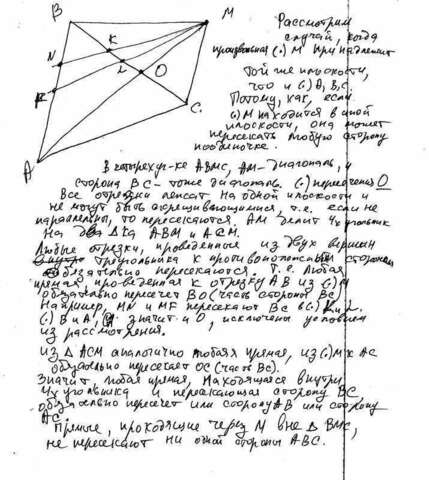 B
M
Рассмотрим
случай, когда
произвольная (.) M принадлежит
K
N
L
O
той же плоскости,
что и (.) A, B, C.
F
Потому, как, если
C.
(.) M находится в иной
плоскости, она может
пересекать любую сторону
A
В четырехуг-ке ABMC, AM-диагональ, и
сторона BC - тоже диагональ. (.) пересечения O
Все отрезки лежат на одной плоскости и
не могут быть скрещивающимися, т.е. если не
параллельны, то пересекаются. AM делит 4х угольник
На два Δка ABM и ACM.
Любые отрезки, проведенные из двух вершин
треугольника к противоположным сторонам
обязательно пересекаются. Т.е. любая
прямая, проведенная к отрезку AB из (.) M
обязательно пересечет BO (часть стороны BC)
Например, MN и MF пересекают BC в (.) K и L.
(.) B и A, значит и O, исключены условием
из рассмотрения.
из Δ ACM аналогично любая прямая, из (.) M к AC
обязательно пересекает OC (часть BC).
Значит, любая прямая, находящаяся внутри
4х угольника и пересекающая сторону BC,
обязательно пересечет или сторону AB или сторону
AC.
Прямые, проходящие через M вне Δ BMC,
не пересекают ни одной стороны ABC.